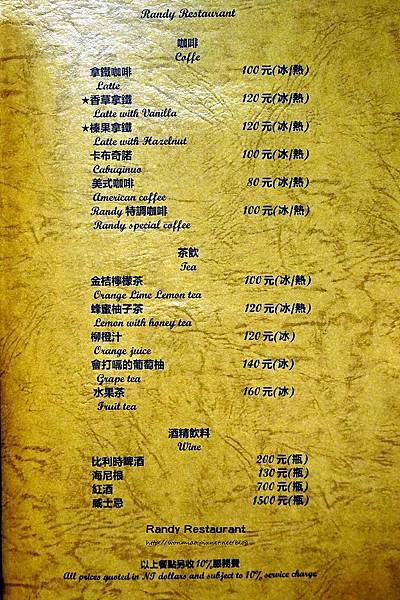 Randy Restaurant
咖啡
Coffe
拿鐵咖啡 100元(冰/熱)
Latte
★香草拿鐵 120元(冰/熱)
Latte with Vanilla
★榛果拿鐵 120元(冰/熱)
Latte with Hazelnut
卡布奇諾 100元(冰/熱)
Cabuqinuo
美式咖啡 80元(冰/熱)
American coffee
Randy 特調咖啡 100元(冰/熱)
Randy special coffee
茶飲
Tea
金桔檸檬茶 100元(冰/熱)
Orange Lime Lemon tea
蜂蜜柚子茶 120元(冰/熱)
Lemon with honey tea
柳橙汁 120元(冰)
Orange juice
會打嗝的葡萄柚 140元(冰)
Grape tea
水果茶 160元(冰)
Fruit tea
酒精飲料
Wine
比利時啤酒 200元(瓶)
海尼根 130元(瓶)
紅酒 700元(瓶)
威士忌 1500元(瓶)
Randy Restaurant
以上餐點另收10%服務費
All prices quoted in NT dollars and subject to 10% service charge